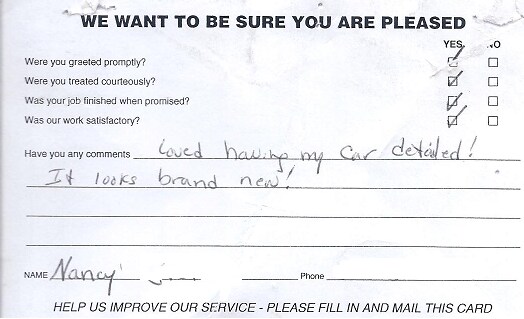 WE WANT TO BE SURE YOU ARE PLEASED
YES NO
Were you greeted promptly?
Were you treated courteously?
Was your job finished when promised?
Was our work satisfactory?
Have you any comments Loved having my car detailed!
It looks brand new!
NAME Nancy Phone
HELP US IMPROVE OUR SERVICE - PLEASE FILL IN AND MAIL THIS CARD